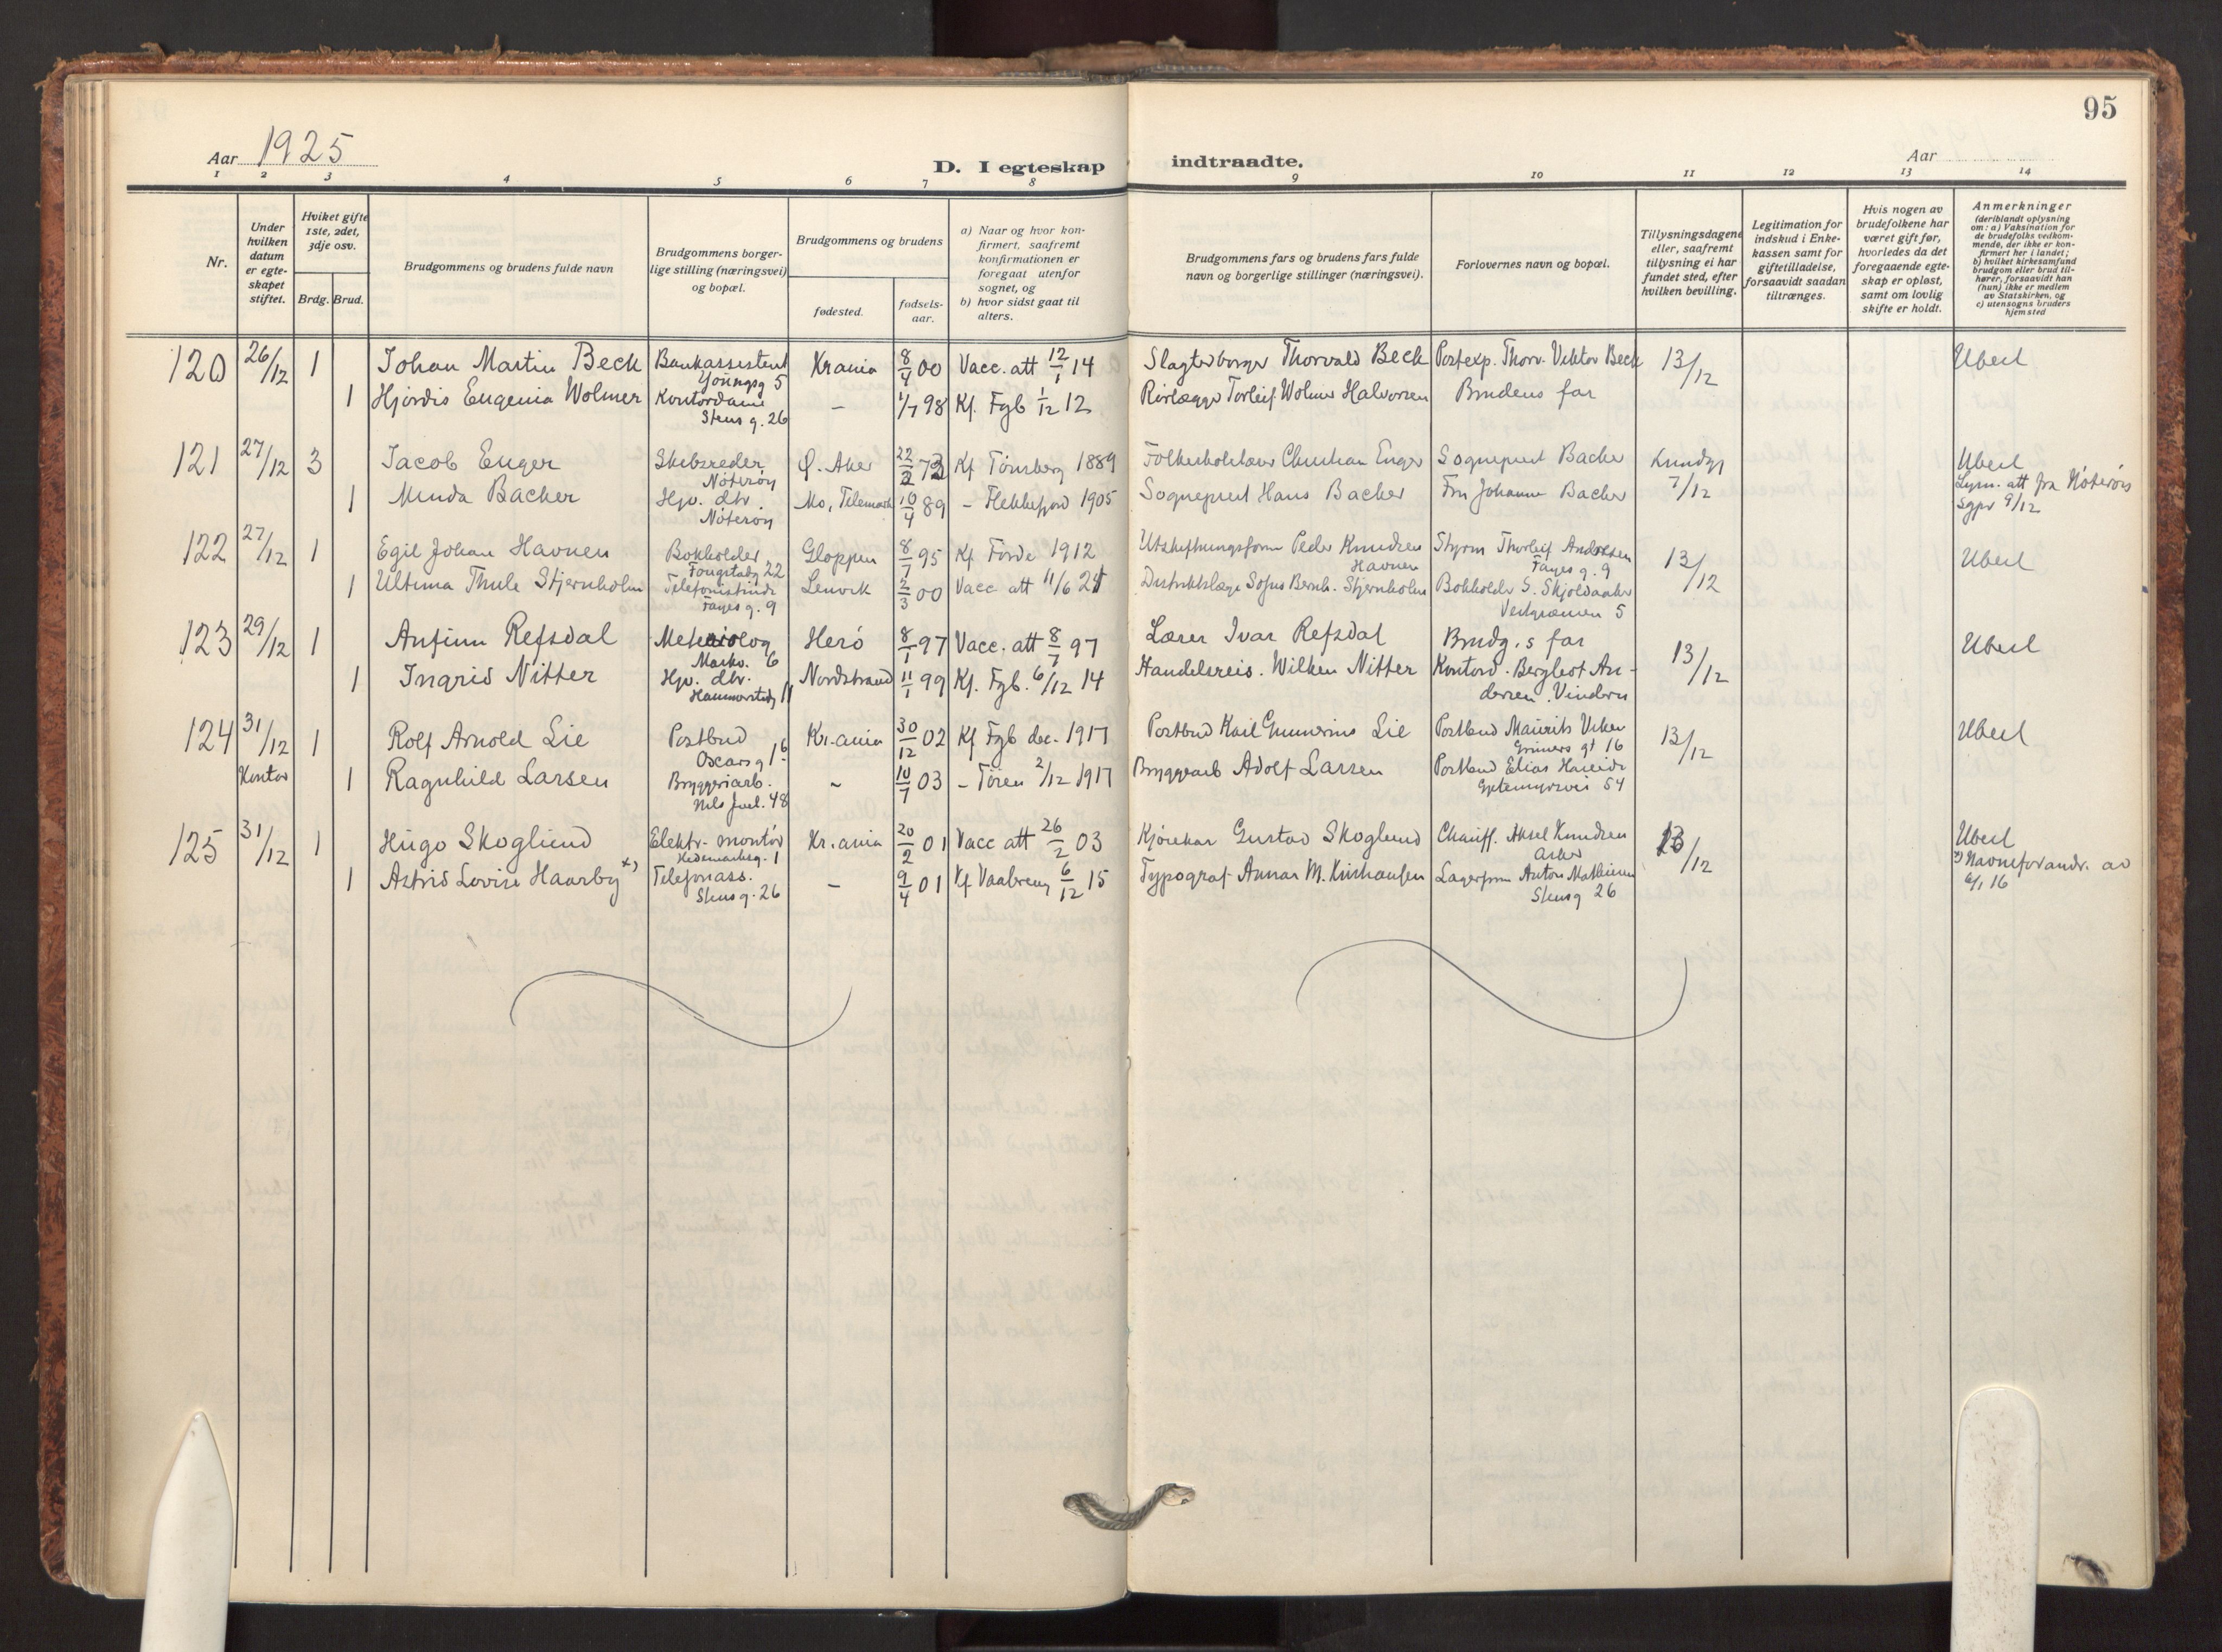 95
Aar 1925
D. I egteskap indtraadte.
Aar
1 2 3 4 5 6 7 8 9 10 11 12 13 14
Nr.
Under hvilken datum er egteskapet stiftet.
Hviket gifte 1ste, 2det, 3dje osv.
Brdg. Brud.
Brudgommens og brudens fulde navn
Brudgommens borgerlige stilling (næringsvei) og bopæl.
Brudgommens og brudens
fødested.
fødselsaar.
a) Naar og hvor konfirmert, saafremt konfirmationen er foregaat utenfor sognet, og
b) hvor sidst gaat til alters.
Brudgommens fars og brudens fars fulde navn og borgerlige stillinger (næringsvei).
Forlovernes navn og bopæl.
Tillysningsdagene eller, saafremt tillysning ei har fundet sted, efter hvilken bevilling.
Legitimation for indskud i Enkekassen samt for giftetilladelse, forsaavidt saadan tiltrænges.
Hvis nogen av brudefolkene har været gift før, hvorledes da det foregaaende egteskap er opløst, samt om lovlig skifte er holdt.
Anmerkninger
(deriblandt oplysning om: a) Vaksination for de brudefolks vedkommende, der ikke er konfirmert her i landet; b) hvilket kirkesamfund brudgom eller brud tilhører, forsaavidt han (hun) ikke er medlem av Statskirken, og c) utensogns bruders hjemsted
120 26/12 1 Johan Martin Beck Bankassistent Youngsg 5 Krania 8/4 00 Vacc. att 12/1 14 Thorvald Beck Postexp. Thorv. Viktor Beck 13/12 Uberl
1 Hjørdis Eugenia Wolmer Kontordame Stensg. 26 – 1/7 98 Kf. Fgb 1/12 12 Rørlægger Torleif Wolmer Halvorsen Brudens far
121 27/12 3 Jacob Enger Skibsreder, Nøterøy Ø. Aker 22/2 73 Kf Tønsberg 1889 Christian Enger Sogneprest Backer Kundgj 7/12 Uberl
1 Minda Backer Hjv. dtr. Nøterøy Mo, Telemark 16/4 89 – Flekkefjord 1905 Sogneprest Hans Backer Fru Johanne Backer Lysn. att fra Nøterøy sgpr 9/12
122 27/12 1 Egil Johan Havnen Bokholder Fougstadg 22 Gloppen 8/7 95 Kf Førde 1912 Utskiftningsform Peder Knudsen Havnen Styrm Thorleif Andresen Fayes g. 9 13/12 Uberl
1 Ultima Thule Stjernholm Telefonistinde Fayes g. 9 Lenvik 2/3 00 Vacc att 11/6 21 Distriktslæge Sofus Bernh. Stjernholm Bokholder S. Skjoldaaker Vestgrænsen 5
123 29/12 1 Anfinn Refsdal Meteorolog Markv. 6 Herø 8/1 97 Vacc. att 8/7 97 Lærer Ivar Refsdal Brudg.s far 13/12 Uberl
1 Ingrid Nitter Hjv. dtr. Hammerstadg 11 Nordstrand 11/1 99 Kf. Fgb. 6/12 14 Handelsreis. Wilken Nitter Kontord. Bergliot Andersen. Vindern
124 31/12 1 Rolf Arnold Lie Postbud Oscars g 16 Kr.ania 30/12 02 Kf Fgb dec. 1917 Postbud Karl Gunerius Lie Postbud Maurits Viken Grüners gt 16 13/12 Uberl
Kontor 1 Ragnhild Larsen Bryggeriarb. Nils Juel. 48 – 10/7 03 – Tøien 2/12 1917 Bryggeriarb Adolf Larsen Postbud Elias Gjetemyrsvei 54
125 31/12 1 Hugo Skoglund Elektr. montør Hedemarksg. 1 Kr.ania 20/2 01 Vacc att 26/2 03 Kjørekar Gustav Skoglund Chauff. Aksel Knudsen Asker 13/12 Uberl
1 Astrid Lovise Haarby x) Telefonass. Stensg. 26 – 9/4 01 Kf Vaalereng 6/12 15 Typograf Annar M. Lagerform Anton Mathisen Stensg 26 x) Navneforandr. av 6/1 16